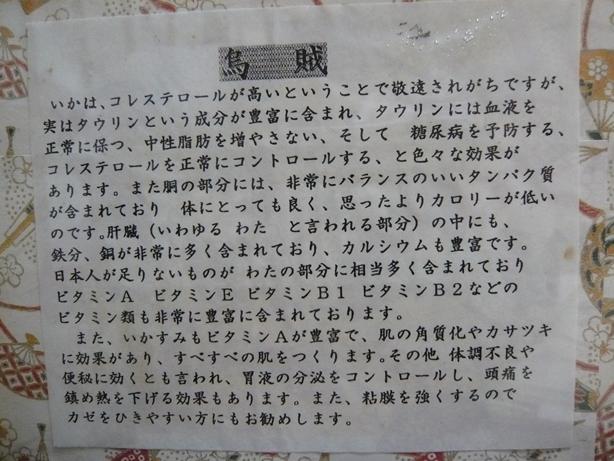 烏　賊
いかは、コレステロールが高いということで敬遠されがちですが、
実はタウリンという成分が豊富に含まれ、タウリンには血液を
正常に保つ、中性脂肪を増やさない、そして　糖尿病を予防する、
コレステロールを正常にコントロールする、と色々な効果が
あります。また胴の部分には、非常にバランスのいいタンパク質
が含まれており　体にとっても良く、思ったよりカロリーが低い
のです。肝臓（いわゆる　わた　と言われる部分）の中にも、
鉄分、銅が非常に多く含まれており、カルシウムも豊富です。
日本人が足りないものが　わたの部分に相当多く含まれており
ビタミンA　ビタミンE　ビタミンB1　ビタミンB2などの
ビタミン類も非常に豊富に含まれております。
　また、いかすみもビタミンAが豊富で、肌の角質化やカサツキ
に効果があり、すべすべの肌をつくります。その他　体調不良や
便秘に効くとも言われ、胃液の分泌をコントロールし、頭痛を
鎮め熱を下げる効果もあります。また、粘膜を強くするので
カゼをひきやすい方にもお勧めします。